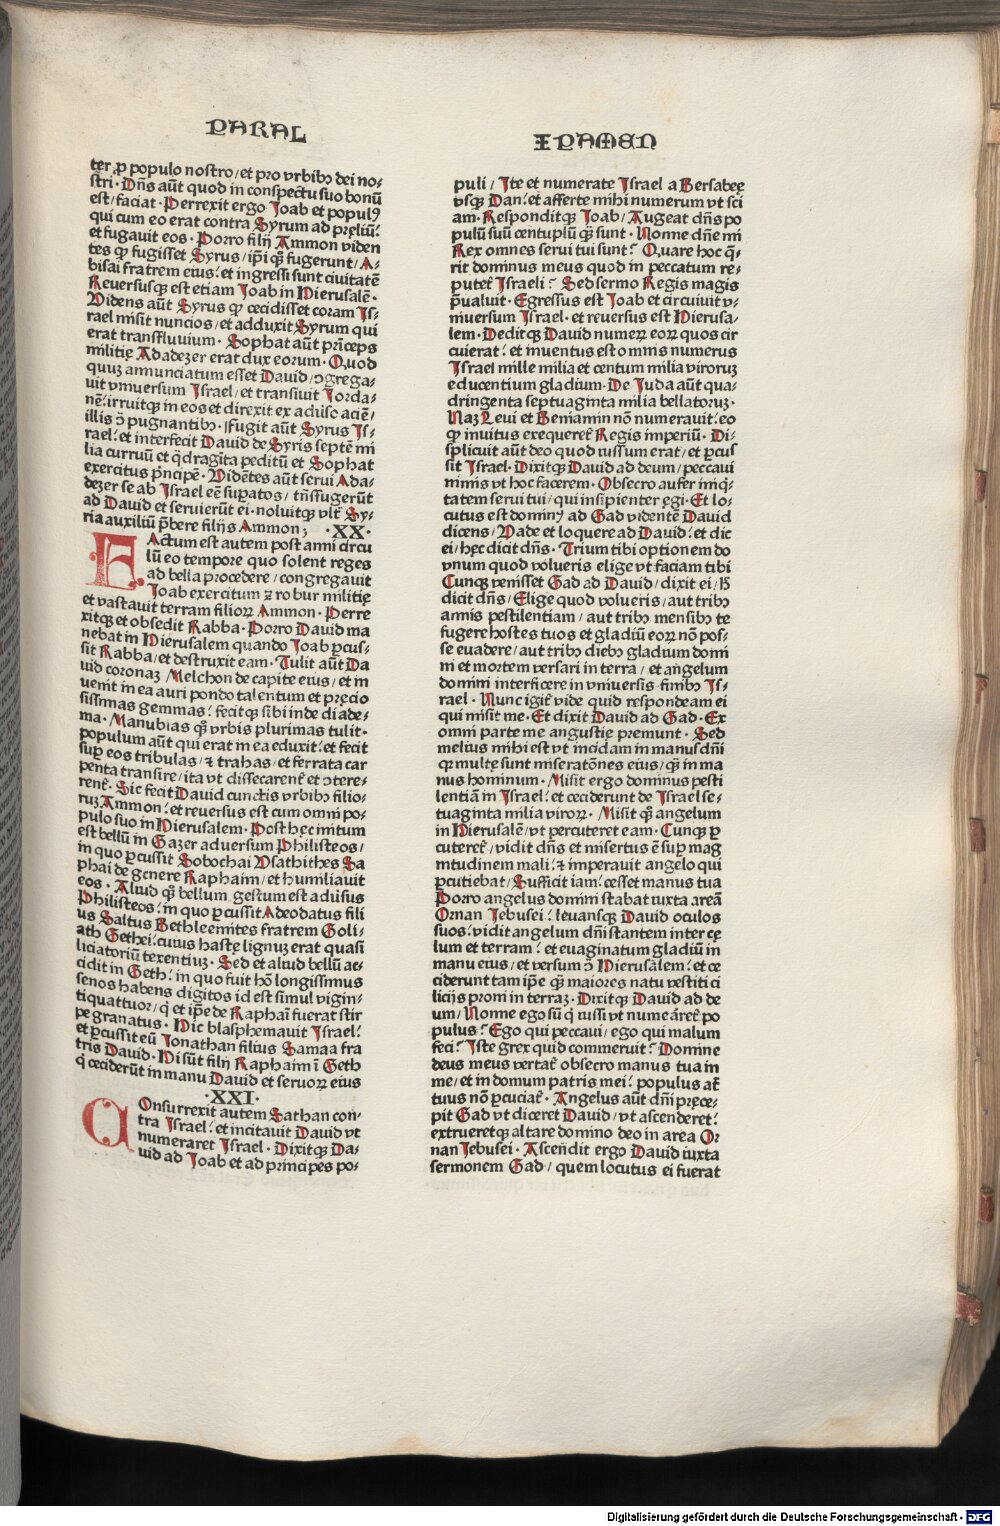 PARAL
ter ꝓ populo nostro/et pro vrbibꝫ dei no⸗
stri · Dn̄s aūt quod in conspectu suo bonū
est/faciat · Perrexit ergo Ioab et populꝰ
qui cum eo erat contra Syrum ad pręliū:
et fugavit eos · Porro filij Ammon viden
tes ꝙ fugisset Syrus/ip̄i qꝫ fugerunt/A⸗
bisai fratrem eius: et ingressi sunt civitatē
Reversusqꝫ est etiam Ioab in Hierusalē ·
Videns aūt Syrus ꝙ cecidisset coram Is⸗
rael misit nuncios/et adduxit Syrum qui
erat transfluvium · Sophat aūt prīceps
militię Adadezer erat dux eorum · Quod
quuꝫ annunciatum esset David/ↄgrega⸗
vit vniversum Israel/et transivit Iorda⸗
nē: irruitqꝫ in eos et direxit ex adūso aciē/
illis ↄ̄ pugnantibꝫ · fugit aūt Syrus Is⸗
rael: et interfecit David de Syris septē mi
lia curruū et q̄dragīta peditū et Sophat
exercitus prīncipē · Vidētes aūt serui Ada⸗
dezer se ab Israel eē suꝑatos/tn̄sfugerūt
ad David et seruierūt ei · noluitqꝫ vlt̄ Sy⸗
ria auxiliū p̄bere filijs Ammon; · XX ·
FActum est autem post anni circu
lū eo tempore quo solent reges
ad bella procedere/congregavit
Ioab exercitum ꝛ robur militię
et vastavit terram filioꝝ Ammon · Perre
xitqꝫ et obsedit Rabba · Porro David ma
nebat in Hierusalem quando Ioab ꝑcus⸗
sit Rabba/et destruxit eam · Tulit aūt Da
vid coronaꝫ Melchon de capite eius/et in
venit in ea auri pondo talentum et pręcio
sissimas gemmas: fecitqꝫ sibi inde diade⸗
ma · Manubias qꝫ vrbis plurimas tulit ·
populum aūt qui erat in ea eduxit: et fecit
suꝑ eos tribulas/ꝛ trahas/et ferrata car
penta transire/ita vt dissecarent̄ et ↄtere⸗
rent̄ · Sic fecit David cunctis vrbibꝫ filio⸗
ruꝫ Ammon: et reversus est cum omni po⸗
pulo suo in Hierusalem · Post hęc initum
est bellū in Gazer adversum Philisteos/
in quo ꝑcussit Sobochai Vsathithes Sa
phai de genere Raphaim/et humiliavit
eos · Aliud qꝫ bellum gestum est adūsus
Philisteos: in quo ꝑcussit Adeodatus fili
us Saltus Bethleemites fratrem Goli⸗
ath Gethei: cuius hastę lignuꝫ erat quasi
liciatoriū texentiuꝫ · Sed et aliud bellū ac⸗
cidit in Geth: in quo fuit hō longissimus
senos habens digitos id est simul vigin⸗
tiquattuor/q̄ et ip̄e de Raphai fuerat stir
pe granatus · Hic blasphemavit Israel:
et ꝑcussit eū Ionathan filius Samaa fra
tris David · Hi sūt filij Raphaim ī Geth
q̄ ceciderūt in manu David et seruoꝝ eius
· XXI ·
COnsurrexit autem Sathan con⸗
tra Israel: et incitavit David vt
numeraret Israel · Dixitqꝫ Da⸗
vid ad Ioab et ad principes po⸗
IPAMEN
puli/Ite et numerate Israel a Bersabee
vsqꝫ Dan: et afferte mihi numerum vt sci
am · Responditqꝫ Ioab/Augeat dn̄s po
pulū suū centuplū qꝫ sunt · Nonne dn̄e mi
Rex omnes serui tui sunt? Quare hoc q̄⸗
rit dominus meus quod in peccatum re⸗
putet̄ Israeli? Sed sermo Regis magis
p̄ualuit · Egressus est Ioab et circuivit v⸗
niversum Israel · et reversus est Hierusa⸗
lem · Deditqꝫ David numeꝝ eoꝝ quos cir
cuierat: et inventus est omnis numerus
Israel mille milia et centum milia viroruꝫ
educentium gladium · De Iuda aūt qua⸗
dringenta septuaginta milia bellatoruꝫ ·
Naꝫ Levi et Beniamin nō numeravit: eo
ꝙ invitus exequeret̄ Regis imperiū · Di⸗
splicuit aūt deo quod iussum erat/et ꝑcus
sit Israel · Dixitqꝫ David ad deum/peccavi
nimis vt hoc facerem · Obsecro aufer iniq̄⸗
tatem serui tui/qui insipienter egi · Et lo⸗
cutus est dominꝰ ad Gad videntē David
dicens/Vade et loquere ad David: et dic
ei/hęc dicit dn̄s · Trium tibi optionem do
vnum quod volueris elige vt faciam tibi
Cunqꝫ venisset Gad ad David/dixit ei/H̄
dicit dn̄s/Elige quod volueris/aut tribꝫ
annis pestilentiam/aut tribꝫ mensibꝫ te
fugere hostes tuos et gladiū eoꝝ nō pos⸗
se evadere/aut tribꝫ diebꝫ gladium domi
ni et mortem versari in terra/et angelum
domini interficere in vniversis finibꝫ Is⸗
rael · Nunc igit̄ vide quid respondeam ei
qui misit me · Et dixit David ad Gad · Ex
omni parte me angustię premunt · Sed
melius mihi est vt incidam in manus dn̄i
qꝫ multę sunt miseratōnes eius/qꝫ in ma
nus hominum · Misit ergo dominus pesti
lentiā in Israel: et ceciderunt de Israel se⸗
tuaginta milia viroꝝ · Misit qꝫ angelum
in Hierusalē/vt percuteret eam · Cunqꝫ ꝑ
cuteret̄/vidit dn̄s et misertus ē suꝑ mag
nitudinem mali: ꝛ imperavit angelo qui
ꝑcutiebat/Sufficit iam: cesset manus tua
Porro angelus domini stabat iuxta areā
Ornan Iebusei: levansqꝫ David oculos
suos: vidit angelum dn̄i stantem inter cę
lum et terram: et evaginatum gladiū in
manu eius/et versum ↄ̄ Hierusalem: et ce
ciderunt tam ip̄e qꝫ maiores natu vestiti ci
licijs proni in terraꝫ · Dixitqꝫ David ad de
um/Nonne ego sū q̄ iussi vt numeraret̄ po
pulus? Ego qui peccavi/ego qui malum
feci? Iste grex quid commeruit? Domine
deus meus vertat̄ obsecro manus tua in
me/et in domum patris mei: populus at̄
tuus nō ꝑcuciat̄ · Angelus aūt dn̄i pręce⸗
pit Gad vt diceret David/vt ascenderet:
extrueretqꝫ altare domino deo in area Or
nan Iebusei · Ascendit ergo David iuxta
sermonem Gad/quem locutus ei fuerat
Digitalisierung gefördert durch die Deutsche Forschungsgemeinschaft · DFG